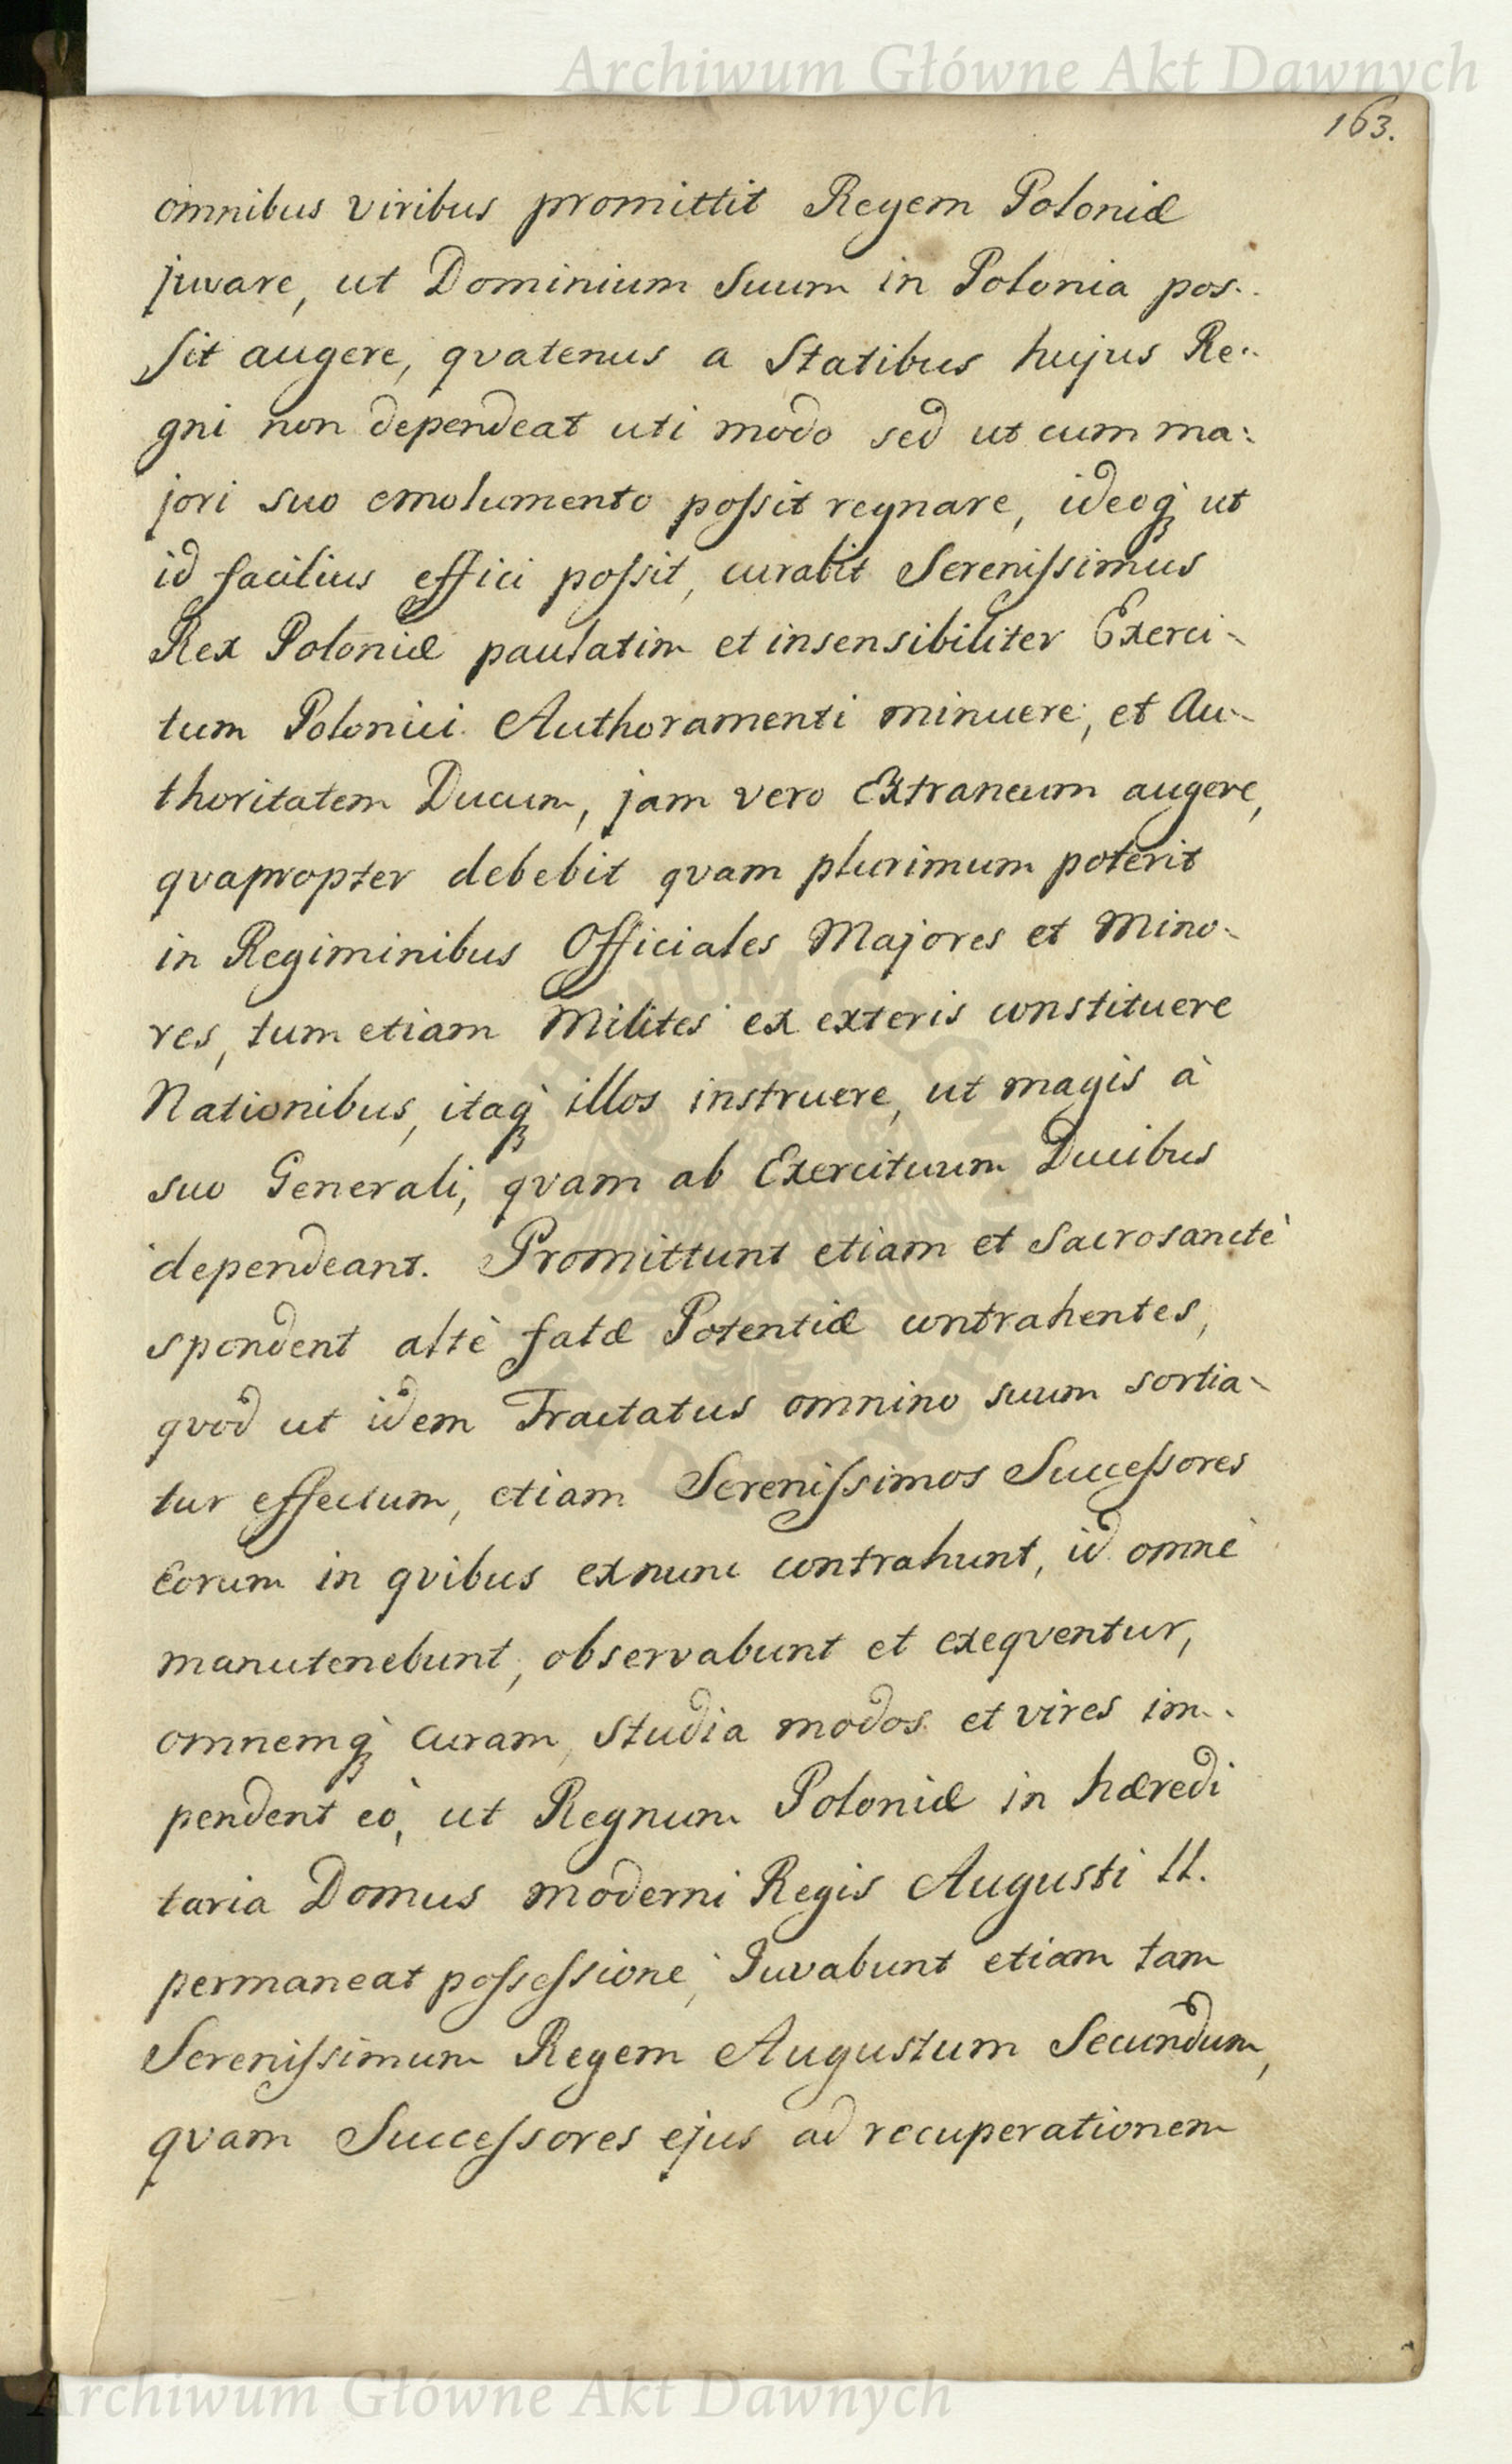 Archiwum Główne Akt Dawnych
163.
omnibus viribus promittit Regem Poloniæ
juvare, ut Dominium suum in Polonia pos..
sit augere, qvatenus a Statibus hujus Re..
gni non dependeat uti modo sed ut cum ma:
jori suo emolumento possit regnare, ideoq; ut
id facilius effici possit, curabit Serenissimus
Rex Poloniæ paulatim et insensibiliter Exerci-
tum Polonici Authoramenti minuere, et Au-
thoritatem Ducum, jam vero Extraneum augere,
qvapropter debebit qvam plurimum poterit
in Regiminibus Officiales Majores et Mino-
res, tum etiam Milites ex exteris constituere
Nationibus, itaq; illos instruere, ut magis à
suo Generali, qvam ab Exercituum Ducibus
dependeant. Promittunt etiam et Sacrosanctè
spondent altè fatæ Potentiæ contrahentes,
qvod ut idem Tractatus omnino suum sortia-
tur effectum, etiam Serenissimos Successores
Eorum in qvibus exnunc contrahunt, id omne
manutenebunt, observabunt et exeqventur,
omnemq; curam, studia modos et vires im..
pendent eò, ut Regnum Poloniæ in hæredi
taria Domus moderni Regis Augusti II.
permaneat possessione, Juvabunt etiam tam
Serenissimum Regem Augustum Secundum,
qvam Successores ejus ad recuperationem
Archiwum Główne Akt Dawnych